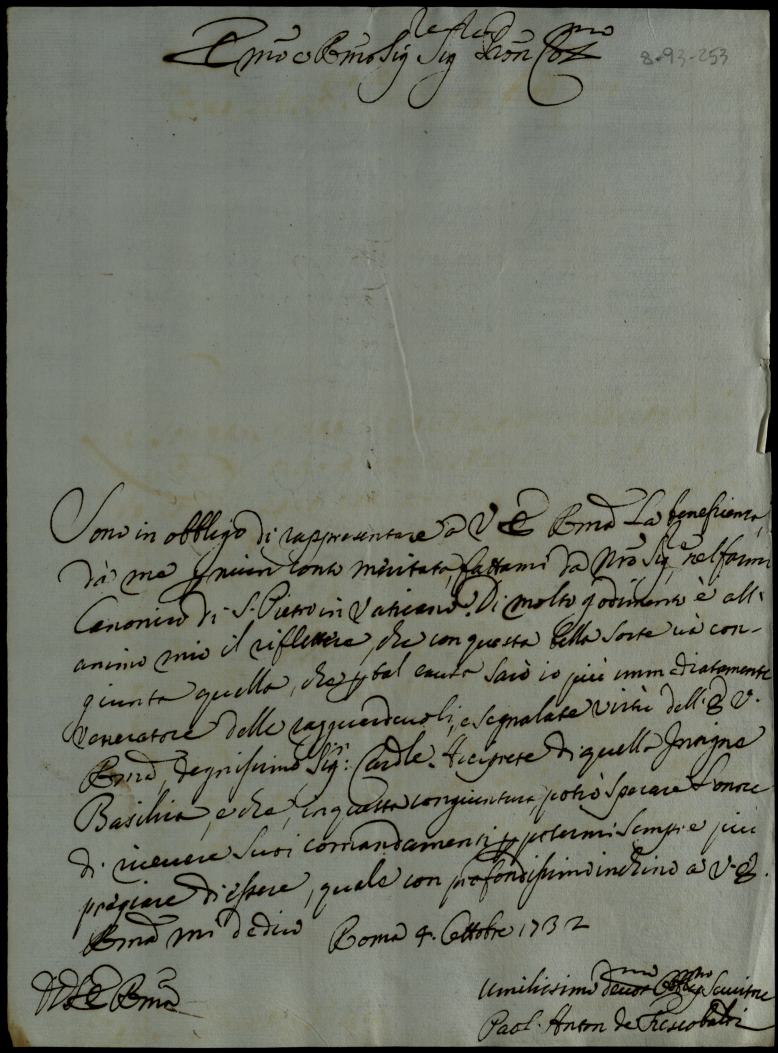 Emo e Rmo Sig Sig Pron Colmo
8-93-253
Sono in obbligo di rappresentare à V E Rma La beneficenza,
dà me per niun conto meritata, fattami da Nro Sigre nel farmi
Canonico di S. Pietro in Vaticano. Di molto godimento è all'
animo mio il riflettere, che con questa bella sorte và con-
giunta quella, che p tal causa sarò io più immediatamente
Veneratore delle ragguardevoli, e segnalate virtù dell' E V.
Rma, degnissimo Sigr: Cardle Arciprete di quella Insigne
Basilica, e che, in questa congiuntura, potrò sperare L'onore
di ricevere Suoi comandamenti p potermi sempre più
pregiare di essere, quale con profondissimo inchino à V. E.
Rma mi dedico Roma 4. Ottobre 1732
D V E Rma
Umilissimo Devotmo Obbligmo Servitore
Paol: Anton de Frescobaldi